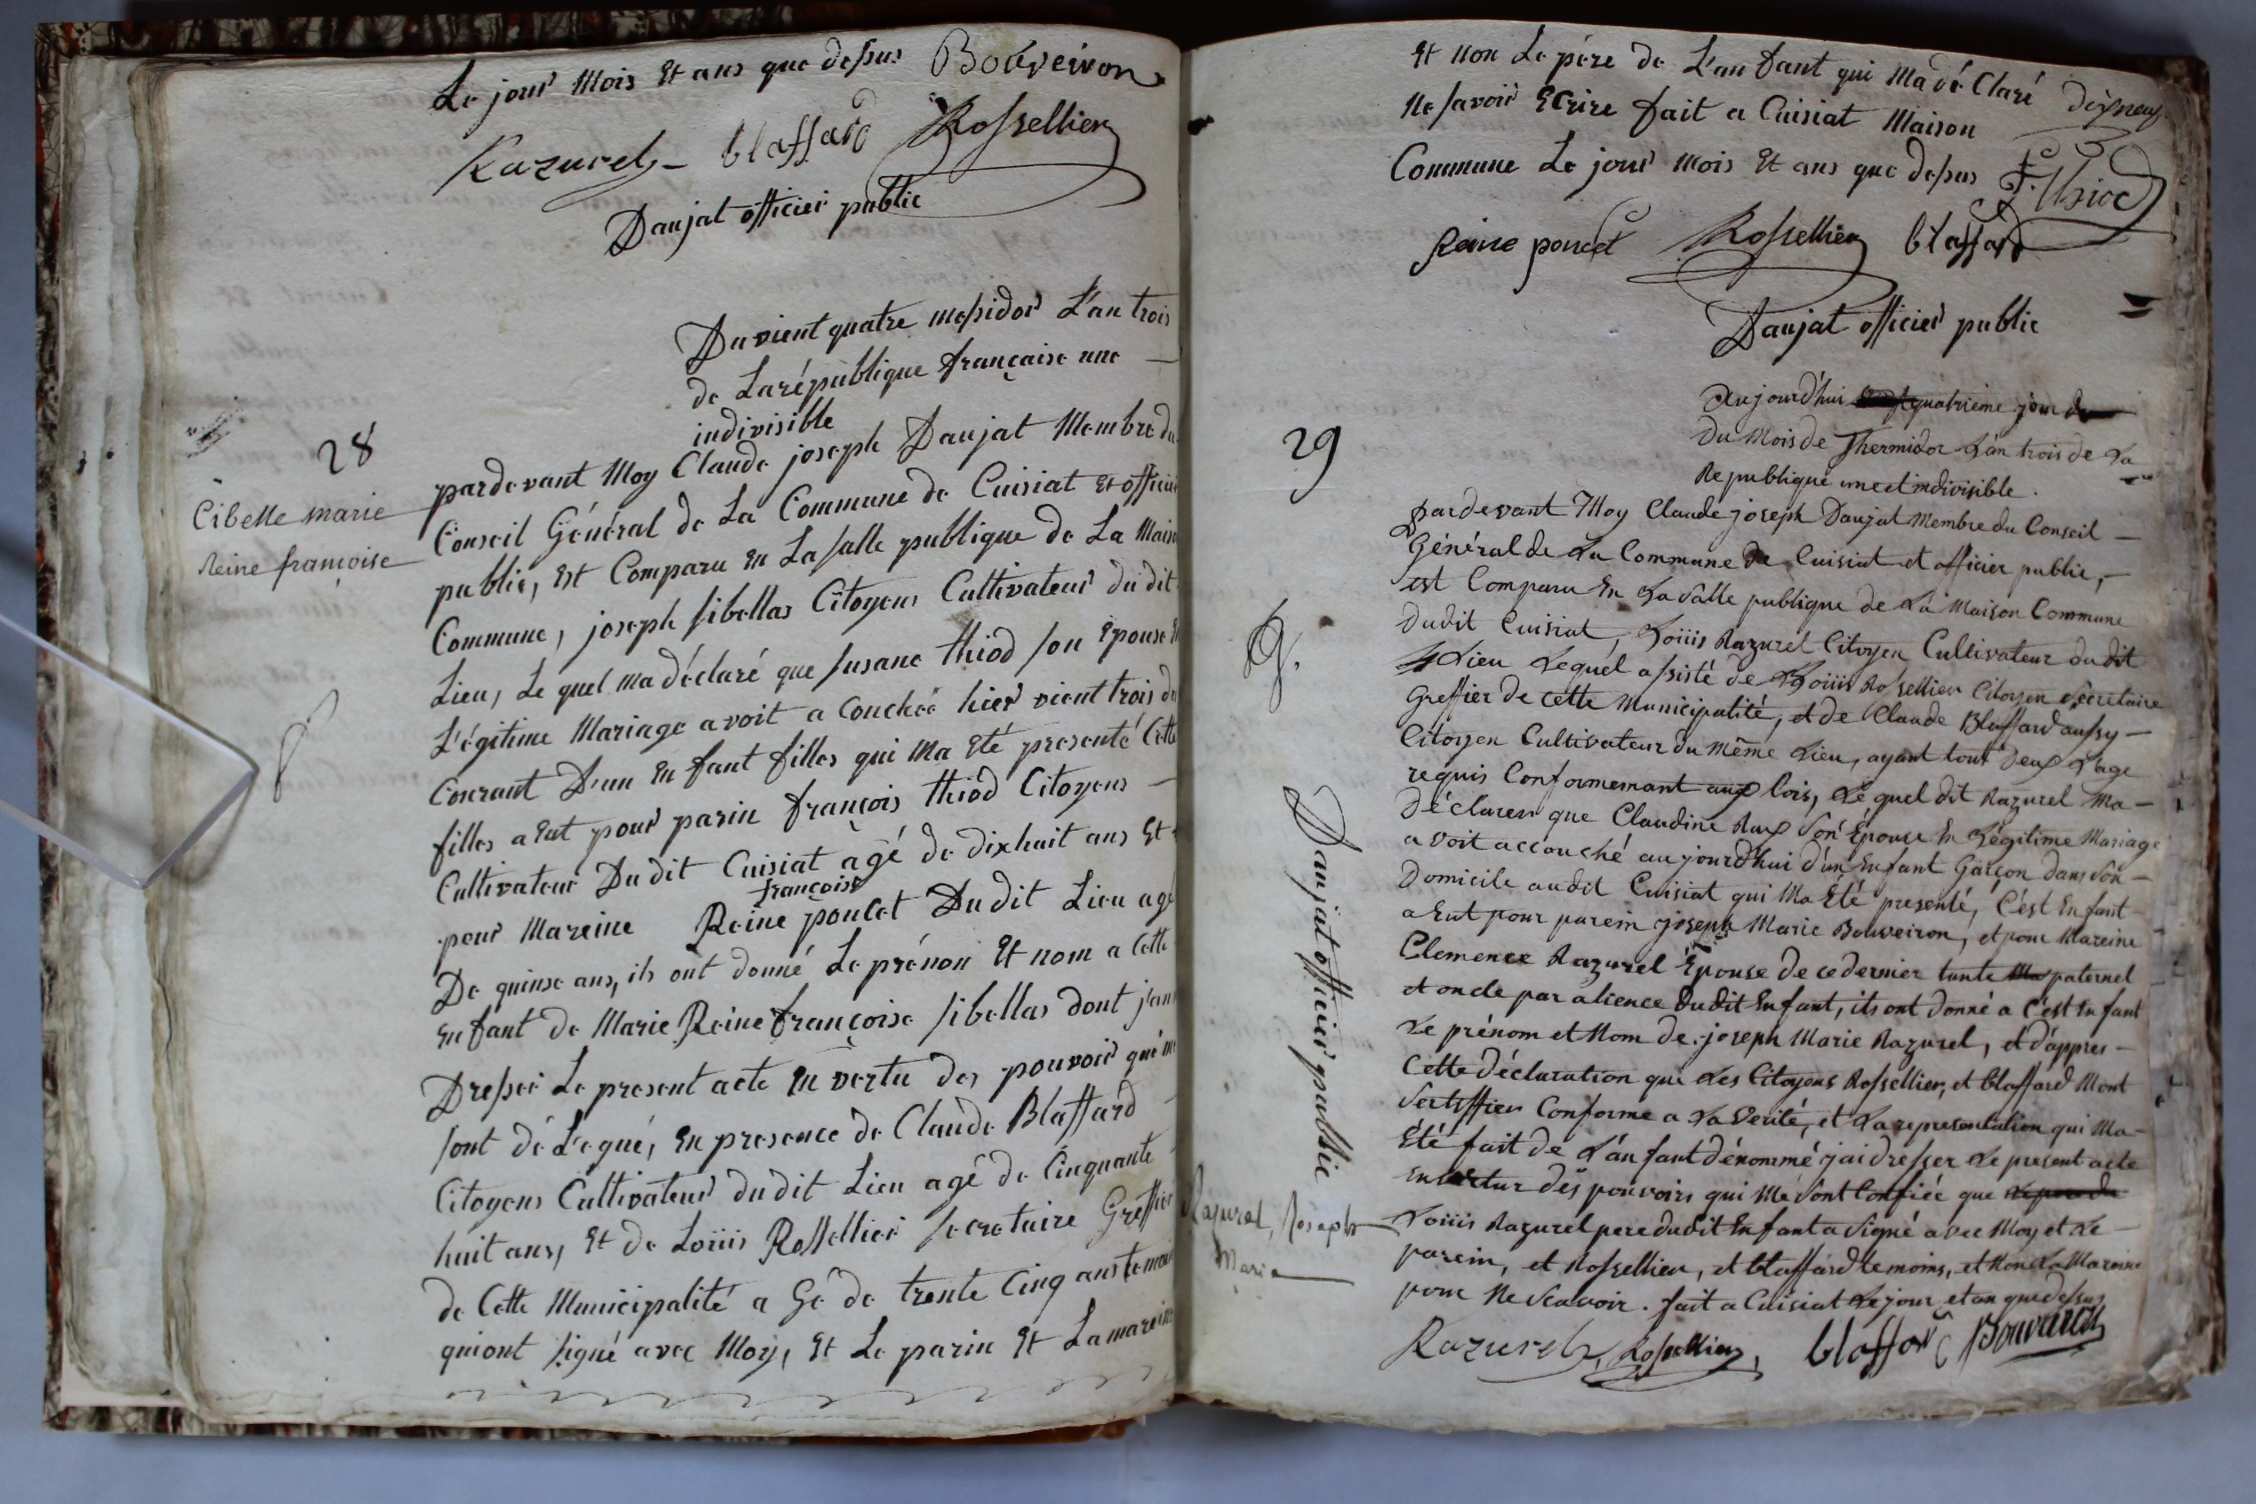 Le jour Mois Et ans que dessus Bouveiron
Razurel blaffard Rossellier
Daujat officier public
Du vient quatre messidor L'an trois
de La république française une
indivisible
28
Cibelle marie
Reine francoise
pardevant Moy Claude joseph Daujat Membre du
Conseil Général de La Commune de Cuisiat et officier
public, Est Comparu En La salle publique de La Maison
Commune, joseph sibellas Citoyens Cultivateur du dit
Lieu, Le quel ma déclaré que susane thiod son épouse En
L'égitime Mariage avoit a Couchée hier vient trois du
Courant D'un En fant filles qui Ma Eté presenté Cette
filles a Eut pour parin françois thiod Citoyens
Cultivateur Du dit Cuisiat agé de dixhuit ans Et
françoise
pour Mareine Reine poncet Du dit Lieu agé
De quinse ans, ils ont donné Le prénon Et nom a Cette
En fant de Marie Reine françoise sibellas dont j'an
Dressee Le present acte En vertu des pouvoir qui me
sont dé Legué, En presence de Claude Blaffard
Citoyens Cultivateur du dit Lieu agé de Cinquante
huit ans, Et de Loüis Rossellier secretaire Greffier
de Cette Municipalité a Gé de trente Cinq ans temoin
qui ont signé avec Moy, Et Le parin Et La mareine
Et non Le père de L'an fant qui Ma dé Claré
Ne savoir Ecrire fait a Cuisiat Maison
Commune Le jour Mois Et ans que dessus F. thiod
Reine poncet Rossellier blaffard
Daujat officier public
29
Aujourd'hui quatrieme jour
Du Mois de Thermidor L'an trois de La
Republique une et indivisible.
Pardevant Moy Claude joseph Daujat Membre du Conseil
Général de La Commune de Cuisiat et officier public,
est Comparu En La Salle publique de La Maison Commune
Dudit Cuisiat, Loüis Razurel Citoyen Cultivateur du dit
Lieu Lequel assisté de Loüis Rossellier Citoyen Secretaire
Greffier de cette Municipalité, et de Claude Blaffard aussy
Citoyen Cultivateur du même Lieu, ayant tout deux L'age
requis Conformemant aux lois, Le quel dit Razurel Ma
Déclarer que Claudine Rux Son Epouse En Légitime Mariage
a voit accouché aujourd'hui d'un Enfant Garçon dans Son
Domicile audit Cuisiat qui Ma Eté presenté, C'est Enfant
a Eut pour parein joseph Marie Bouveiron, et pour Mareine
Clemence Razurel Epouse de ce dernier tante paternel
et oncle par alience dudit Enfant, ils ont donné a C'est Enfant
Le prénom et Nom de joseph Marie Razurel, et d'appres
Cette déclaration que Les Citoyens Rossellier, et blaffard Mont
Sertiffier Conforme a La Verité, et La representation qui Ma
Eté fait de L'an fant dénommé j'ai dresser Le present acte
En Vertur des pouvoirs qui Me Sont Confiée que
Loüis Razurel pere dudit Enfant a Signé avec Moy et Le
parein, et Rossellier, et blaffard temoins, et Non La Mareine
pour Ne Scavoir. fait a Cuisiat Le jour et an que dessus
Razurel, Rossellier, blaffard Bouveiron
Daujat officier public
Razurel, Joseph
Marie